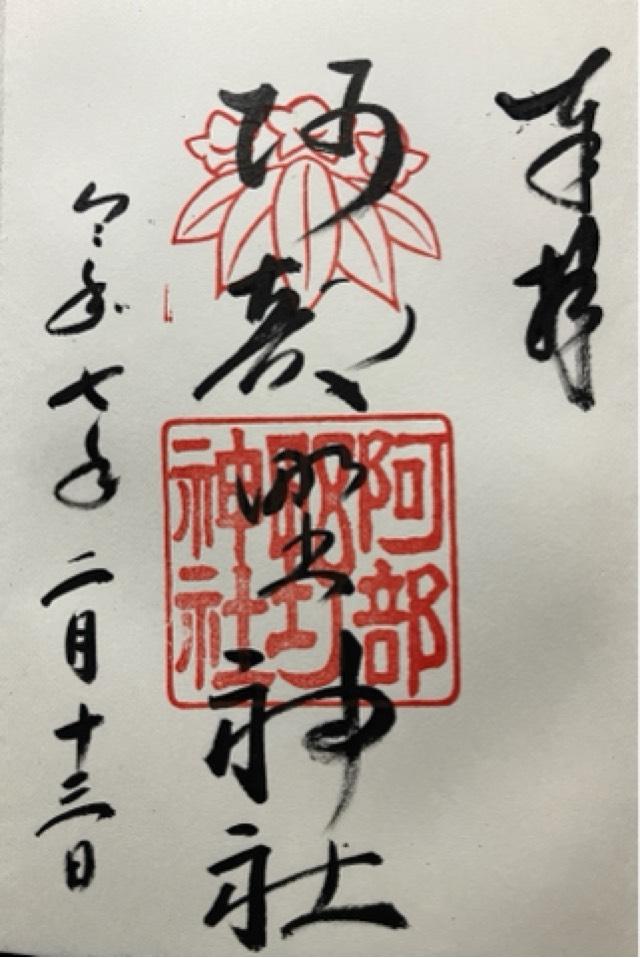 奉拝
阿部野神社
阿部野神社
令和七年二月十三日